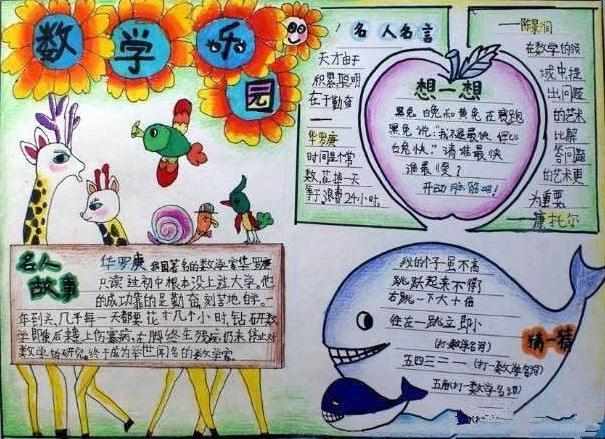 数学乐园
名人名言
天才由于
积累聪明
在于勤奋
——
华罗庚
时间是个常
数,花掉一天
等于浪费24小时。
想一想
黑兔 白兔和黄兔 在赛跑
黑兔说:“我不是最快 但比
白兔快。”请谁最快
谁最慢?
开动脑筋吧!
——陈景润
在数学的领
域中提
出问题
的艺术
比解
答问题
的艺术更
为重要。
——康托尔
名人故事
华罗庚 我国著名的数学家华罗庚
只读过初中根本没上过大学,他
的成功靠的是勤奋,刻苦地自学。一
年到头,几乎每一天都要花十几个小时,钻研数
学即使后染上伤寒病,右脚终生残疾仍未停止对
数学的研究。终于成为举世闻名的数学家
我的个子虽不高
跳跃起来不得了
右跳一下大十倍
往左一跳立即小
(打一数学名词)
猜一猜
五四三二一(打一数学名词)
五角(打一数学名词)